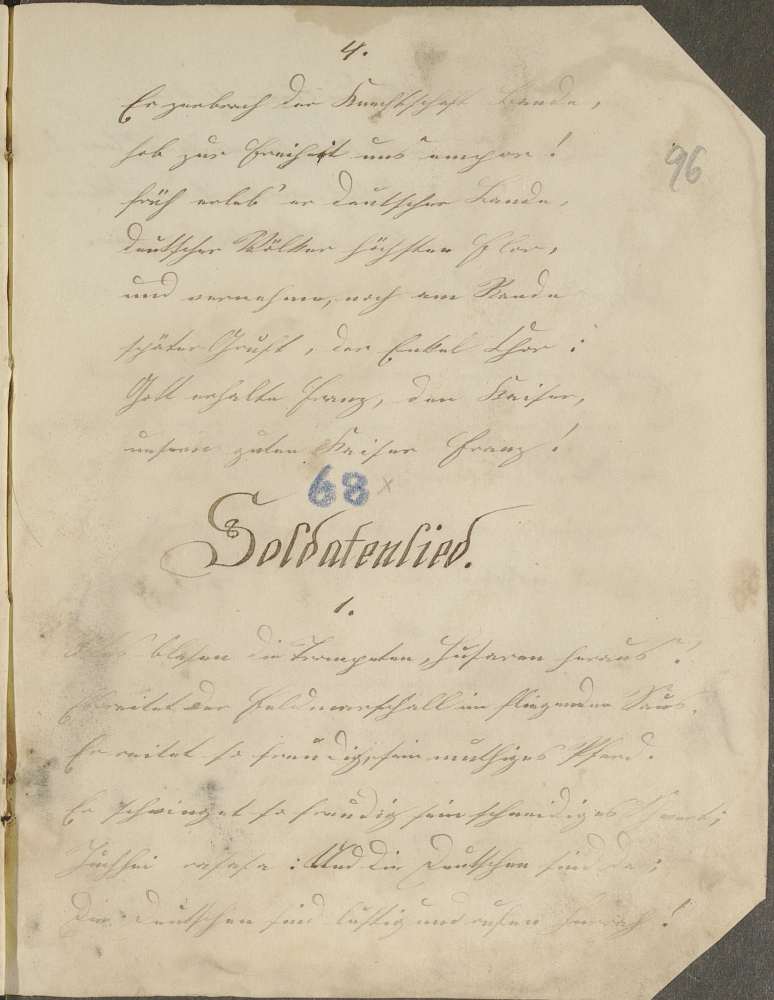 4.
Er zerbrach der Knechtschaft Bande,
hob zur Freiheit uns empor!
früh erleb' er deutscher Lande,
deutscher Völker höchsten Flor,
und vernehme, noch am Rande
später Gruft, der Enkel Chor:
Gott erhalte Franz, den Kaiser,
unsren guten Kaiser Franz!
96
68 x
Soldatenlied.
1.
blasen die Trompeten, Husaren heraus?
Es reitet der Feldmarschall im fliegenden Saus.
Er reitet so freudig, sein muthiges Pferd.
Er schwinget so freudig sein schneidiges Schwert;
Juchhei rasasa: Und die Deutschen sind da;
Die Deutschen sind lustig und rufen Hurrah!